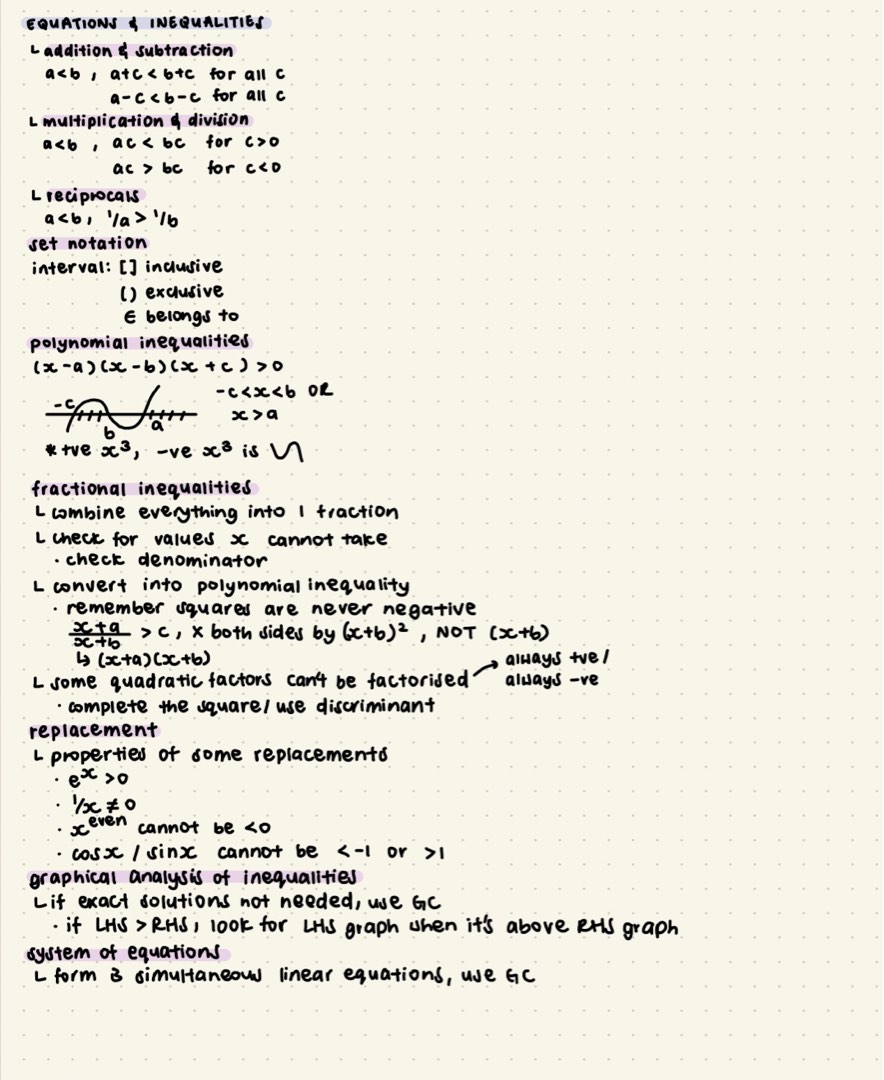 EQUATIONS & INEQUALITIES
└ addition & subtraction
a<b , a+c < b+c for all c
a-c < b-c for all c
└ multiplication & division
a<b , ac < bc for c>0
ac > bc for c<0
└ reciprocals
a<b, 1/a > 1/b
set notation
interval: [] inclusive
() exclusive
∈ belongs to
polynomial inequalities
(x-a)(x-b)(x+c) >0
-c<x<b OR
x>a
-c b a
* +ve x³, -ve x³ is
fractional inequalities
└ combine everything into 1 fraction
└ check for values x cannot take
· check denominator
└ convert into polynomial inequality
· remember squares are never negative
x+a/x+b > c, x both sides by (x+b)², NOT (x+b)
↳ (x+a)(x+b)
└ some quadratic factors can't be factorised → always +ve/
always -ve
· complete the square/ use discriminant
replacement
└ properties of some replacements
· eˣ >0
· 1/x ≠ 0
· x^even cannot be <0
· cosx / sinx cannot be <-1 or >1
graphical analysis of inequalities
└ if exact solutions not needed, use GC
· if LHS > RHS, look for LHS graph when it's above RHS graph
system of equations
└ form 3 simultaneous linear equations, use GC